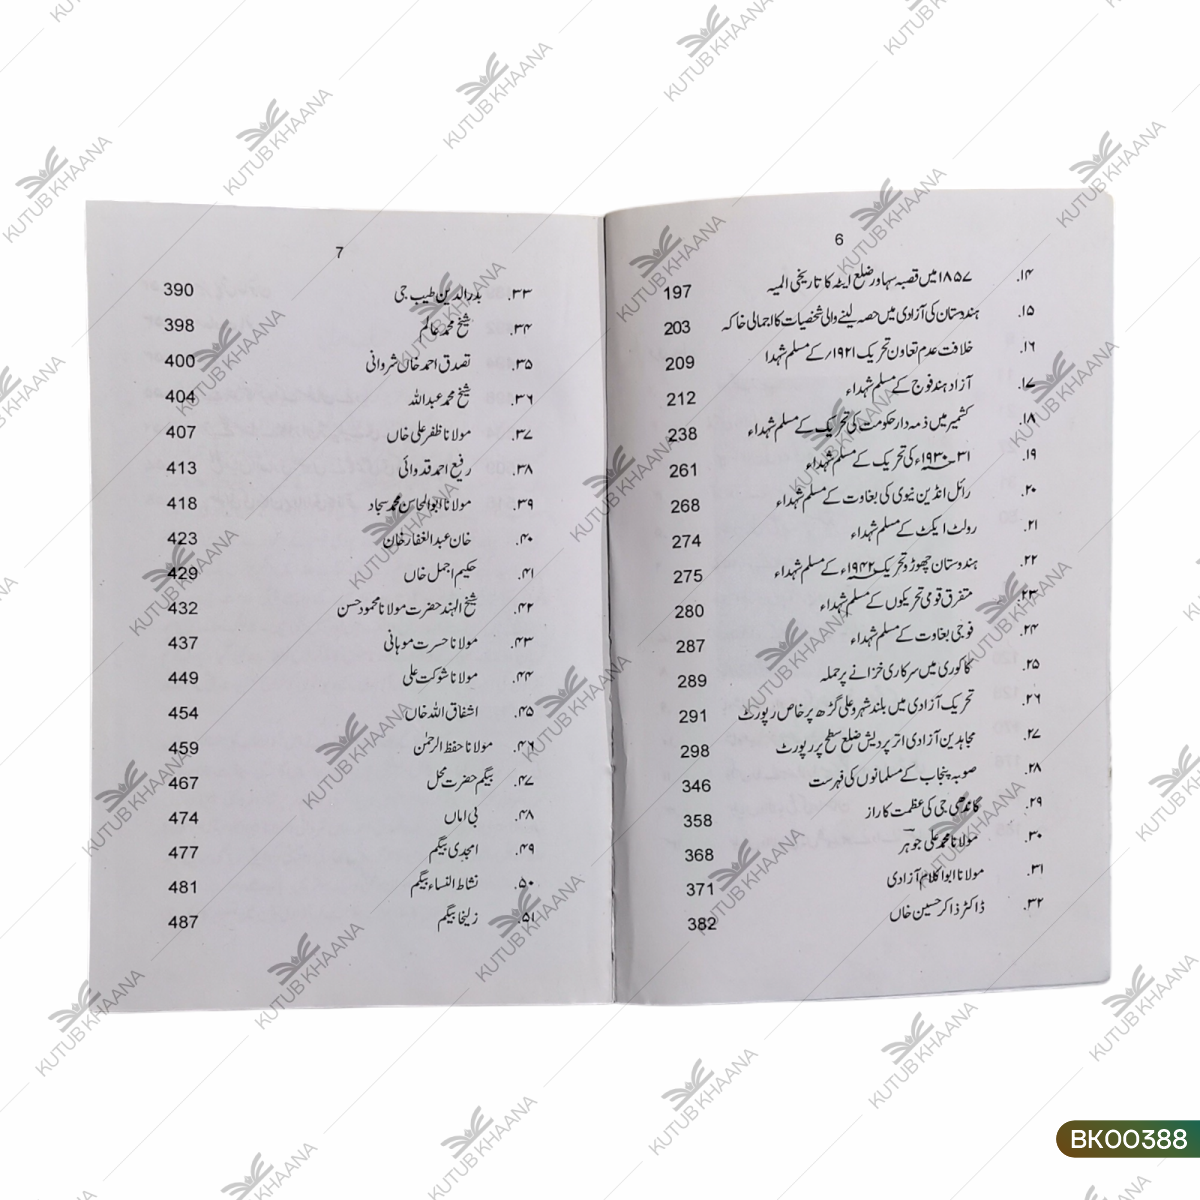 6
۱۴. ۱۸۵۷ میں قصبہ سہاور ضلع ایٹہ کا تاریخی المیہ 197
۱۵. ہندوستان کی آزادی میں حصہ لینے والی شخصیات کا اجمالی خاکہ 203
۱۶. خلافت عدم تعاون تحریک ۱۹۲۱ء کے مسلم شہدا 209
۱۷. آزاد ہند فوج کے مسلم شہداء 212
۱۸. کشمیر میں ذمہ دار حکومت کی تحریک کے مسلم شہداء 238
۱۹. ۳۱-۱۹۳۰ء کی تحریک کے مسلم شہداء 261
۲۰. رائل انڈین نیوی کی بغاوت کے مسلم شہداء 268
۲۱. رولٹ ایکٹ کے مسلم شہداء 274
۲۲. ہندوستان چھوڑو تحریک ۱۹۴۲ء کے مسلم شہداء 275
۲۳. متفرق قومی تحریکوں کے مسلم شہداء 280
۲۴. فوجی بغاوت کے مسلم شہداء 287
۲۵. کاکوری میں سرکاری خزانے پر حملہ 289
۲۶. تحریک آزادی میں بلند شہر و علی گڑھ پر خاص رپورٹ 291
۲۷. مجاہدین آزادی اتر پردیش ضلع سطح پر رپورٹ 298
۲۸. صوبہ پنجاب کے مسلمانوں کی فہرست 346
۲۹. گاندھی جی کی عظمت کا راز 358
۳۰. مولانا محمد علی جوہر 368
۳۱. مولانا ابوالکلام آزادی 371
۳۲. ڈاکٹر ذاکر حسین خاں 382
7
۳۳. بدرالدین طیب جی 390
۳۴. شیخ محمد عالم 398
۳۵. تصدق احمد خان شروانی 400
۳۶. شیخ محمد عبداللہ 404
۳۷. مولانا ظفر علی خاں 407
۳۸. رفیع احمد قدوائی 413
۳۹. مولانا ابوالمحاسن محمد سجاد 418
۴۰. خان عبدالغفار خان 423
۴۱. حکیم اجمل خاں 429
۴۲. شیخ الہند حضرت مولانا محمود حسن 432
۴۳. مولانا حسرت موہانی 437
۴۴. مولانا شوکت علی 449
۴۵. اشفاق اللہ خاں 454
۴۶. مولانا حفظ الرحمٰن 459
۴۷. بیگم حضرت محل 467
۴۸. بی اماں 474
۴۹. امجدی بیگم 477
۵۰. نشاط النساء بیگم 481
۵۱. زلیخا بیگم 487
KUTUB KHAANA
BK00388